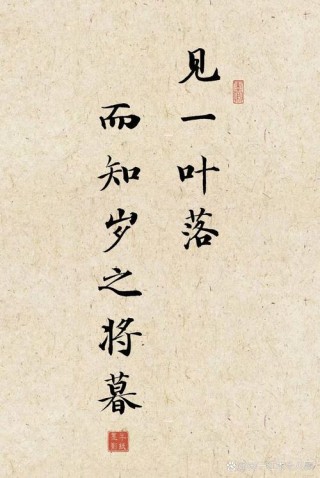 见一叶落
而知岁之将暮